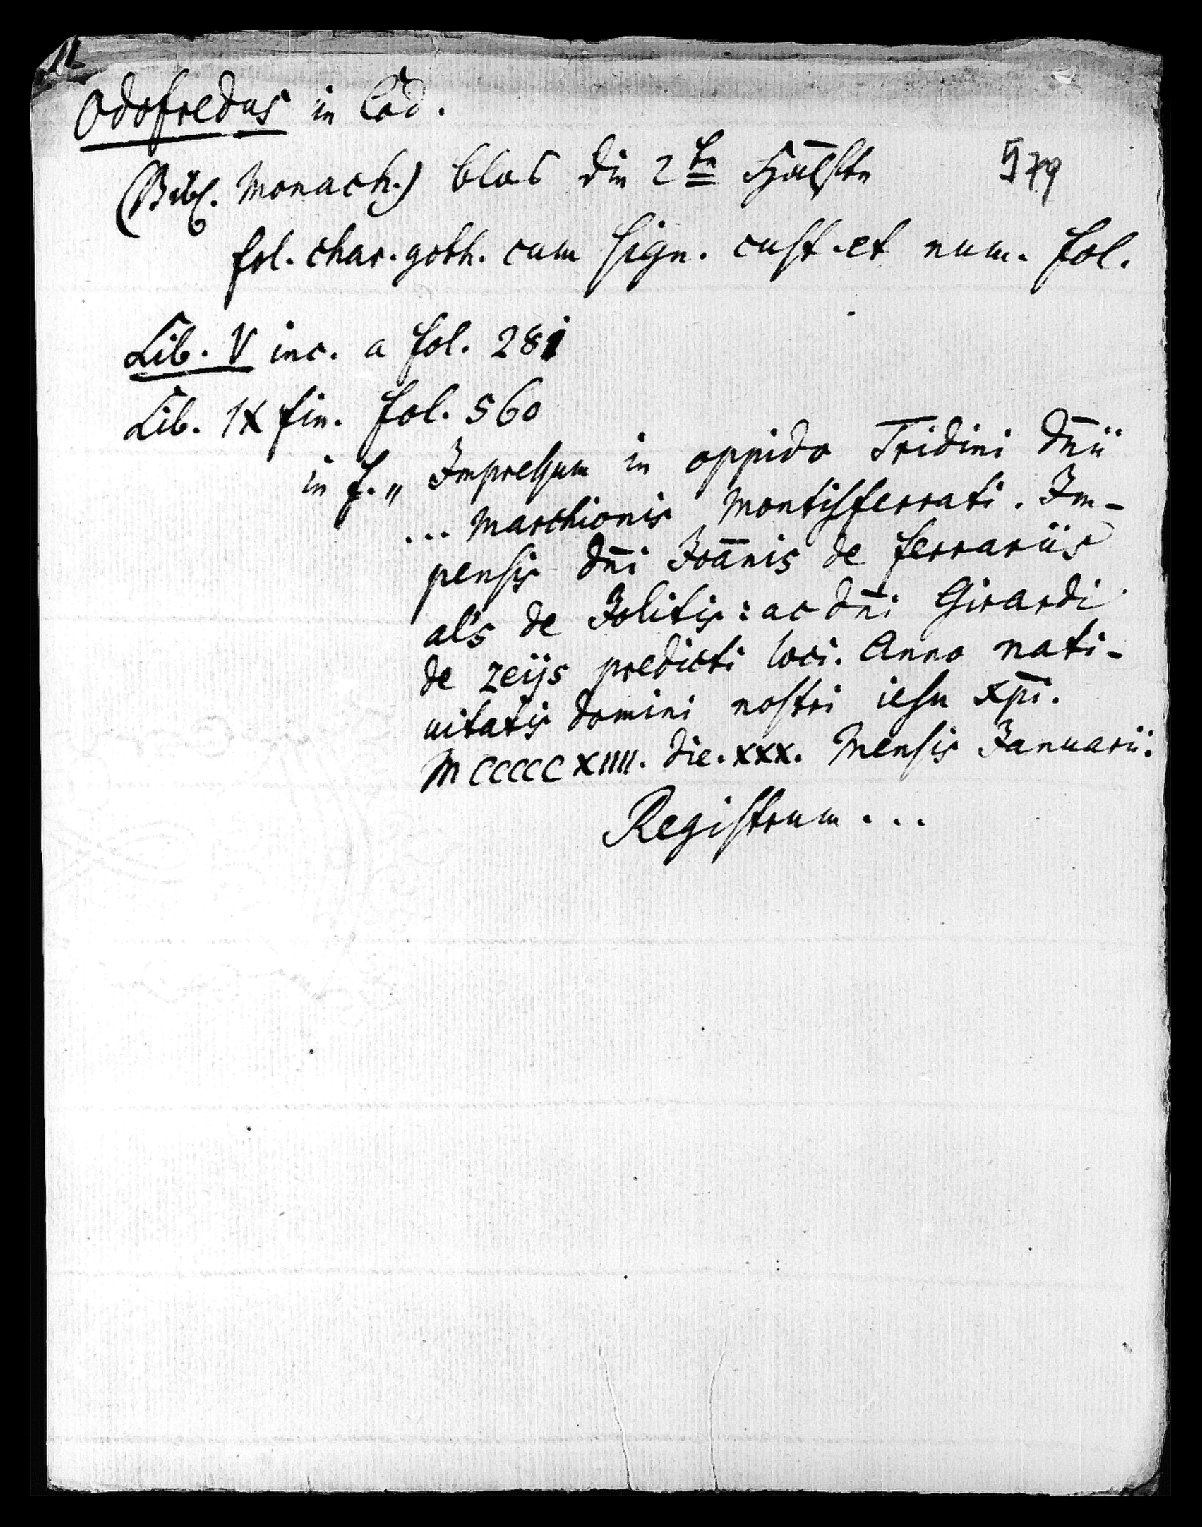 Odofredus in Cod.
(Bibl. Monach.) blos die 2te Hälfte
579
fol. char. goth. cum sign. cust. et num. fol.
Lib. V inc. a fol. 281
Lib. IX fin. fol. 560
in f. „ Impressum in oppido Tridini dn̄ii
... Marchionis Montisferrati. Im-
pensis dn̄i Joān̄is de ferrariis
al's de Jolitis: ac dn̄i Girardi
de zeijs predicti loci. Anno nati-
uitatis domini nostri iesu xp̄i.
MCCCCCXIIII. die. xxx. Mensis Januarii.
Registrum ...